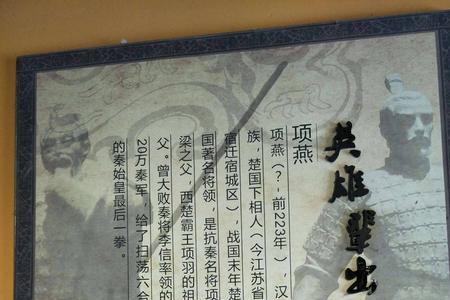 英雄辈出
项燕
项燕（？-前223年），汉
族，楚国下相人（今江苏省
宿迁宿城区），战国末年楚
国著名将领，是抗秦名将项
梁之父，西楚霸王项羽的祖
父。曾大败秦将李信率领的
20万秦军，给了扫荡六合
的秦始皇最后一拳。